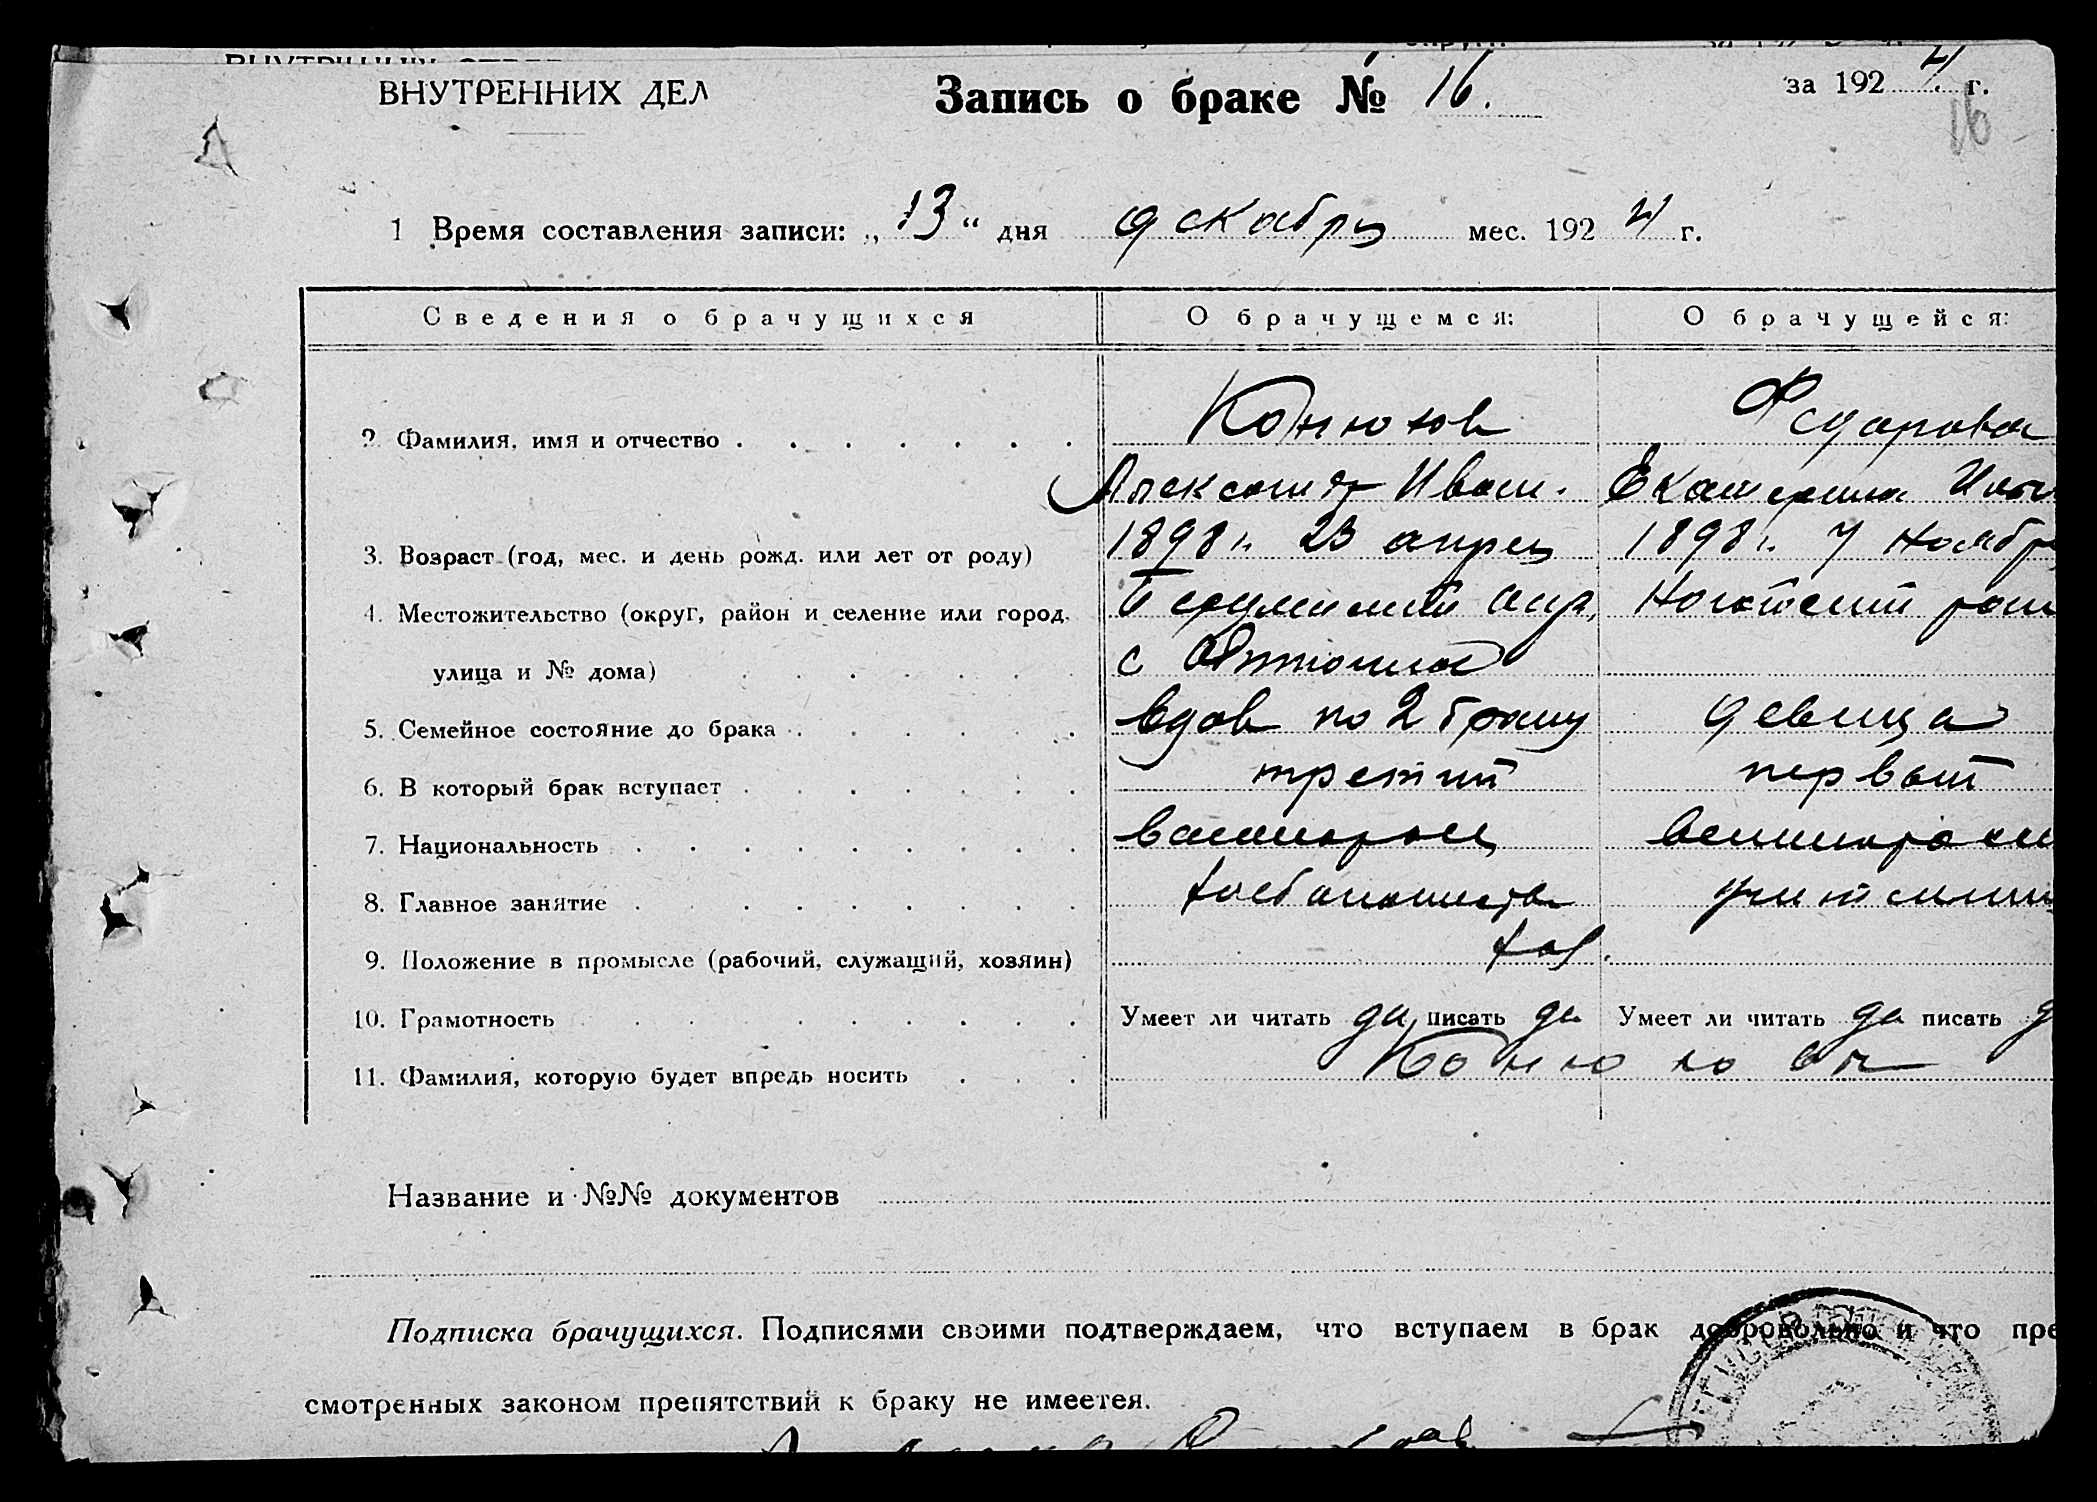 ВНУТРЕННИХ ДЕЛ
Запись о браке № 16.
за 1924 г.
16
1 Время составления записи: „13“ дня декабря мес. 1924 г.
Сведения о брачущихся О брачущемся: О брачущейся:
2. Фамилия, имя и отчество Конюхов
Александр Иван. Екатерина
3. Возраст (год, мес. и день рожд. или лет от роду) 1898 г. 23 апреля 1898 г. 7 ноябр
4. Местожительство (округ, район и селение или город,
улица и № дома) с
5. Семейное состояние до брака вдов по 2 браку девица
6. В который брак вступает третий первый
7. Национальность великоросс
8. Главное занятие хлебопашество
9. Положение в промысле (рабочий, служащий, хозяин) хоз.
10. Грамотность Умеет ли читать да, писать да Умеет ли читать да писать д
11. Фамилия, которую будет впредь носить Конюховы
Название и №№ документов
Подписка брачущихся. Подписями своими подтверждаем, что вступаем в брак добровольно и что пре
смотренных законом препятствий к браку не имеется.